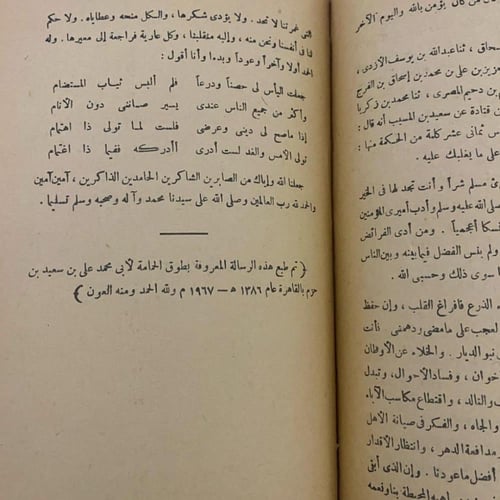 كان يؤمن بالله واليوم الآخر
إسحاق ، ثنا عبدالله بن يوسف الأزدى ،
بن عزيز بن على بن محمد بن إسحاق بن الفرج
بن دحيم المصرى ، ثنا محمد بن زكريا
قتادة عن سعيد بن المسيب أنه قال :
س ثمانى عشرة كلمة من الحكمة منها :
على ما يغلبك عليه .
مسلم شراً و أنت تجد لها فى الخير
صلى الله عليه وسلم وأدب أميرى المؤمنين
أعجمياً . ومن أدى الفرائض
ولم ينس الفضل فيما بينه وبين الناس
سوى ذلك وحسبى الله .
الذرع فافراغ القلب ، وإن حفظ
لعجب على ما مضى ودهمنى فأنت
نبو الديار . والخلاء عن الأوطان
خوان ، وفساد الأحوال ، وتبدل
والتالد ، واقتطاع مكاسب الآباء
والجاه ، والفكر فى صيانة الأهل
مدافعة الدهر ، وانتظار الأقدار
أفضل ما عودنا . وإن الذى أبقى
المحيطة بنا ونعمه
التى غمرتنا لا تحد . ولا يؤدى شكرها ، والكل منحه وعطاياه . ولا حكم
لنا فى أنفسنا ونحن منه ، وإليه منقلبنا ، وكل عارية فراجعة إلى معيرها . وله
الحمد أولا وآخراً وعوداً وبدءا وأنا أقول :
جعلت اليأس لى حصناً ودرعاً فلم ألبس ثياب المستضام
وأكثر من جميع الناس عندى يسير صاننى دون الأنام
إذا ما صح لى دينى وعرضى فلست لما تولى ذا اهتمام
تولى الأمس والغد لست أدرى أأدركه ففيما ذا اغتمام
جعلنا الله وإياك من الصابرين الشاكرين الحامدين الذاكرين ، آمين آمين
والحمد لله رب العالمين وصلى الله على سيدنا محمد وآله وصحبه وسلم تسليما .
﴿ تم طبع هذه الرسالة المعروفة بطوق الحمامة لأبى محمد على بن سعيد بن
حزم بالقاهرة عام ١٣٨٦ هـ — ١٩٦٧ م ولله الحمد ومنه العون ﴾